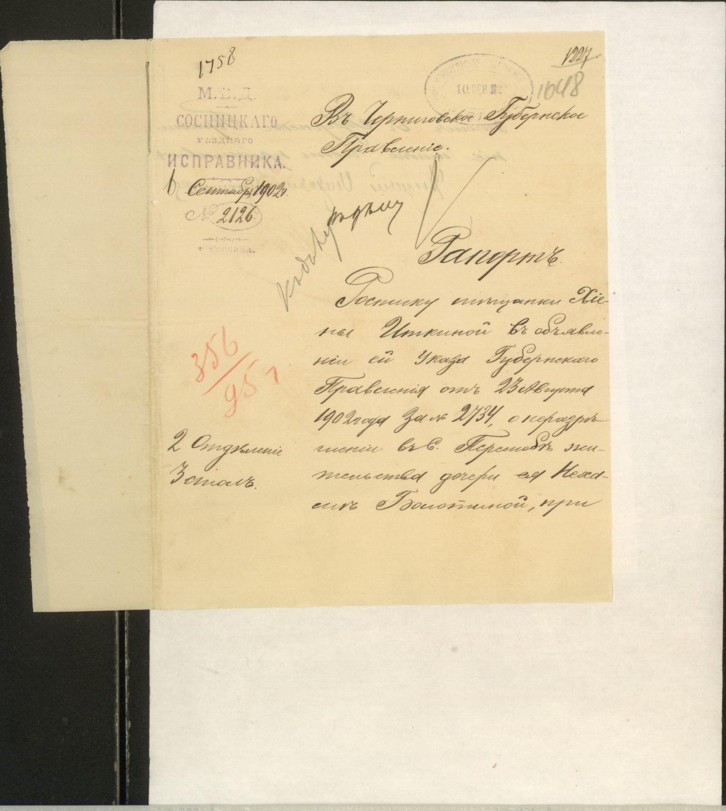 1758
1227
1048
М.В.Д.
СОСНИЦКАГО
УѢЗДНАГО
ИСПРАВНИКА.
6 Сентября 1902 г.
№ 2126
Въ Черниговское Губернское
Правленіе.
Рапортъ.
Росписку мѣщанки Хіе-
ны Иткиной въ объявле-
ніи ей Указа Губернскаго
Правленія отъ 23 Августа
1902 года за № 2734, о неразрѣ-
шеніи въ с. Перелюбѣ жи-
тельства дочери ея Неха-
мѣ Болотиной, при
356
95
2 Отдѣленіе
3 столъ.